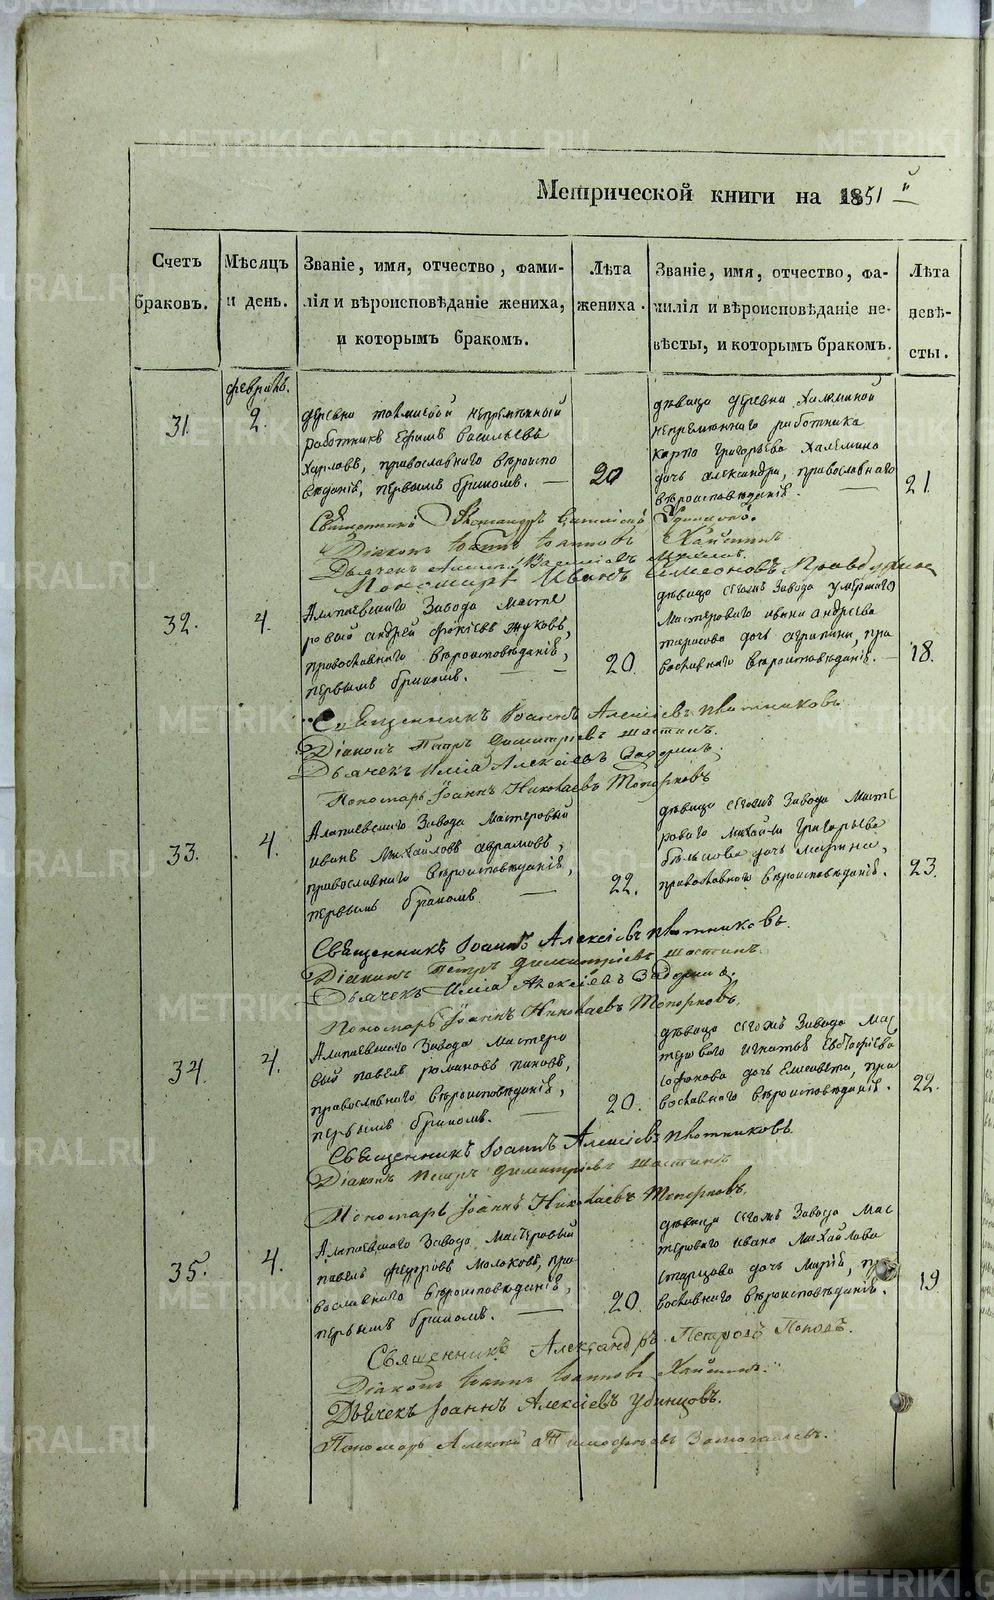 Метрической книги на 1851й
Счетъ браковъ.
Мѣсяцъ и день.
Званіе, имя, отчество, фами-
лія и вѣроисповѣданіе жениха,
и которымъ бракомъ.
Лѣта жениха.
Званіе, имя, отчество, фа-
милія и вѣроисповѣданіе не-
вѣсты, и которымъ бракомъ.
Лѣта невѣ-
сты.
февраль.
31.
2.
деревни непремѣнный
работникъ Ефимъ Васильевъ
Харловъ, православнаго вѣроиспо
вѣданія, первымъ бракомъ. —
20
дѣвица деревни
непремѣннаго работника
Карпа Григорьева
дочь Александра, православнаго
вѣроисповѣданія. —
21
Священникъ Александръ Удинцовъ.
Діаконъ Іоаннъ Іоанновъ Хлопинъ
Дьячекъ Васильевъ
Пономарь Иванъ Симеоновъ
32.
4.
Алапаевскаго Завода масте
ровый Андрей Фокіевъ Жуковъ,
православнаго вѣроисповѣданія,
первымъ бракомъ. —
20.
дѣвица сегожъ Завода умершаго
мастероваго Ивана Андреева
Тарасова дочь Агрипина, пра
вославнаго вѣроисповѣданія. —
18.
Священникъ Іоаннъ Алексіевъ Плотниковъ.
Діаконъ Петръ Димитріевъ Шастинъ.
Дьячекъ Илія Алексіевъ Задоринъ.
Пономарь Іоаннъ Николаевъ Топорковъ
33.
4.
Алапаевскаго Завода мастеровый
Иванъ Михайловъ Абрамовъ,
православнаго вѣроисповѣданія,
первымъ бракомъ —
22.
дѣвица сегожъ Завода масте
роваго Михайла Григорьева
дочь Марина,
православнаго вѣроисповѣданія.
23.
Священникъ Іоаннъ Алексіевъ Плотниковъ.
Діаконъ Петръ Димитріевъ Шастинъ.
Дьячекъ Илія Алексіевъ Задоринъ.
Пономарь Іоаннъ Николаевъ Топорковъ.
34.
4.
Алапаевскаго Завода мастеро
вый Павелъ Романовъ Пановъ,
православнаго вѣроисповѣданія,
первымъ бракомъ. —
20.
дѣвица сегожъ Завода мас
тероваго Игнатья Евстафіева
дочь Елисавета, пра
вославнаго вѣроисповѣданія.
22.
Священникъ Іоаннъ Алексіевъ Плотниковъ.
Діаконъ Петръ Димитріевъ Шастинъ
Пономарь Іоаннъ Николаевъ Топорковъ.
35.
4.
Алапаевскаго Завода мастеровый
Павелъ Федоровъ Молоковъ, пра
вославнаго вѣроисповѣданія,
первымъ бракомъ. —
20.
дѣвица сегожъ Завода мас
тероваго Ивана Михайлова
Старцова дочь Марія, пра
вославнаго вѣроисповѣданія.
19
Священникъ Александръ Петровъ Поповъ.
Діаконъ Іоаннъ Іоанновъ Хлопинъ.
Дьячекъ Іоаннъ Алексіевъ Удинцовъ.
Пономарь Алексій Тимофеевъ
METRIKI.GASO-URAL.RU